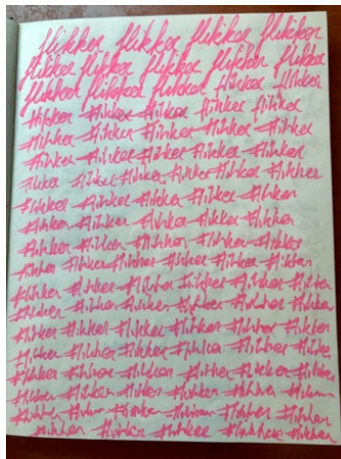 flikker flikker flikker flikker
flikker flikker flikker flikker flikker
flikker flikker flikker flikker flikker
flikker flikker flikker flikker flikker
flikker flikker flikker flikker flikker
flikker flikker flikker flikker flikker
flikker flikker flikker flikker flikker flikker
flikker flikker flikker flikker flikker
flikker flikker flikker flikker flikker
flikker flikker flikker flikker flikker
flikker flikker flikker flikker flikker flikker
flikker flikker flikker flikker flikker flikker
flikker flikker flikker flikker flikker flikker
flikker flikker flikker flikker flikker flikker
flikker flikker flikker flikker flikker flikker
flikker flikker flikker flikker flikker flikker
flikker flikker flikker flikker flikker flikker
flikker flikker flikker flikker flikker
flikker flikker flikker flikker flikker